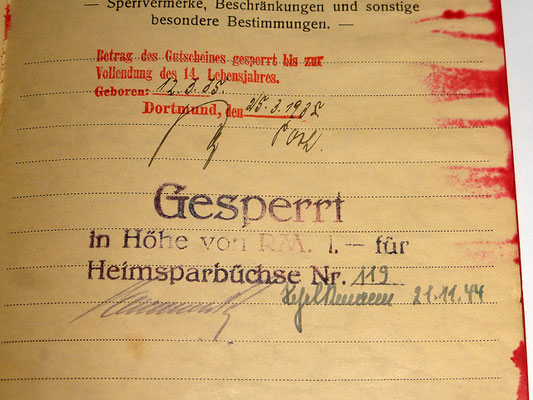 — Sperrvermerke, Beschränkungen und sonstige
besondere Bestimmungen. —
Betrag des Gutscheines gesperrt bis zur
Vollendung des 14. Lebensjahres.
Geboren: 12.3.35.
Dortmund, den 25.3.1935
Gesperrt
in Höhe von RM. 1.— für
Heimsparbüchse Nr. 119
21.11.44